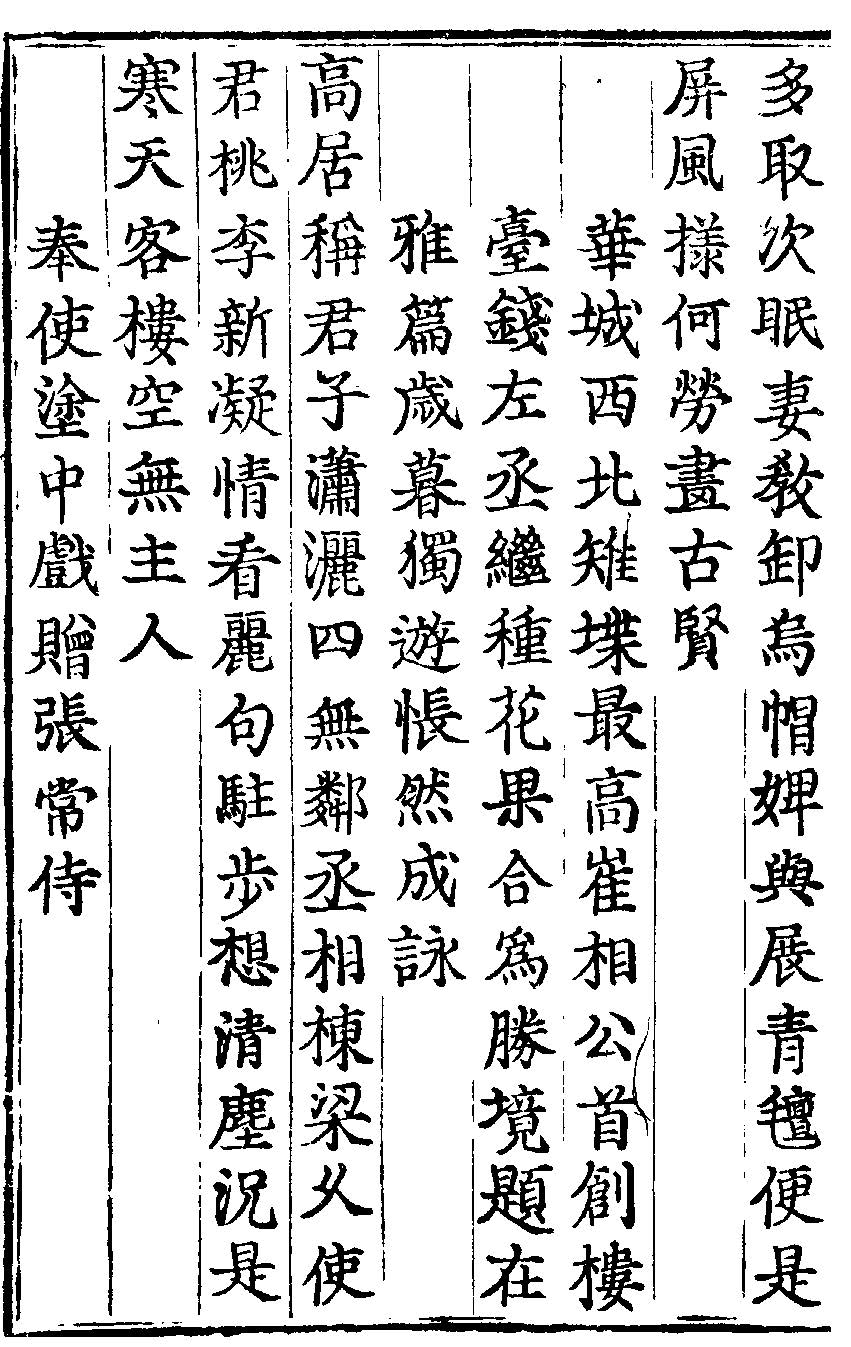 多取次眠妻教卸烏帽婢與展青氊便是
屏風樣何勞畫古賢
華城西北雉堞最高崔相公首創樓
臺錢左丞繼種花果合爲勝境題在
雅篇歲暮獨遊悵然成詠
高居稱君子瀟灑四無鄰丞相棟梁久使
君桃李新凝情看麗句駐步想清塵況是
寒天客樓空無主人
奉使塗中戲贈張常侍